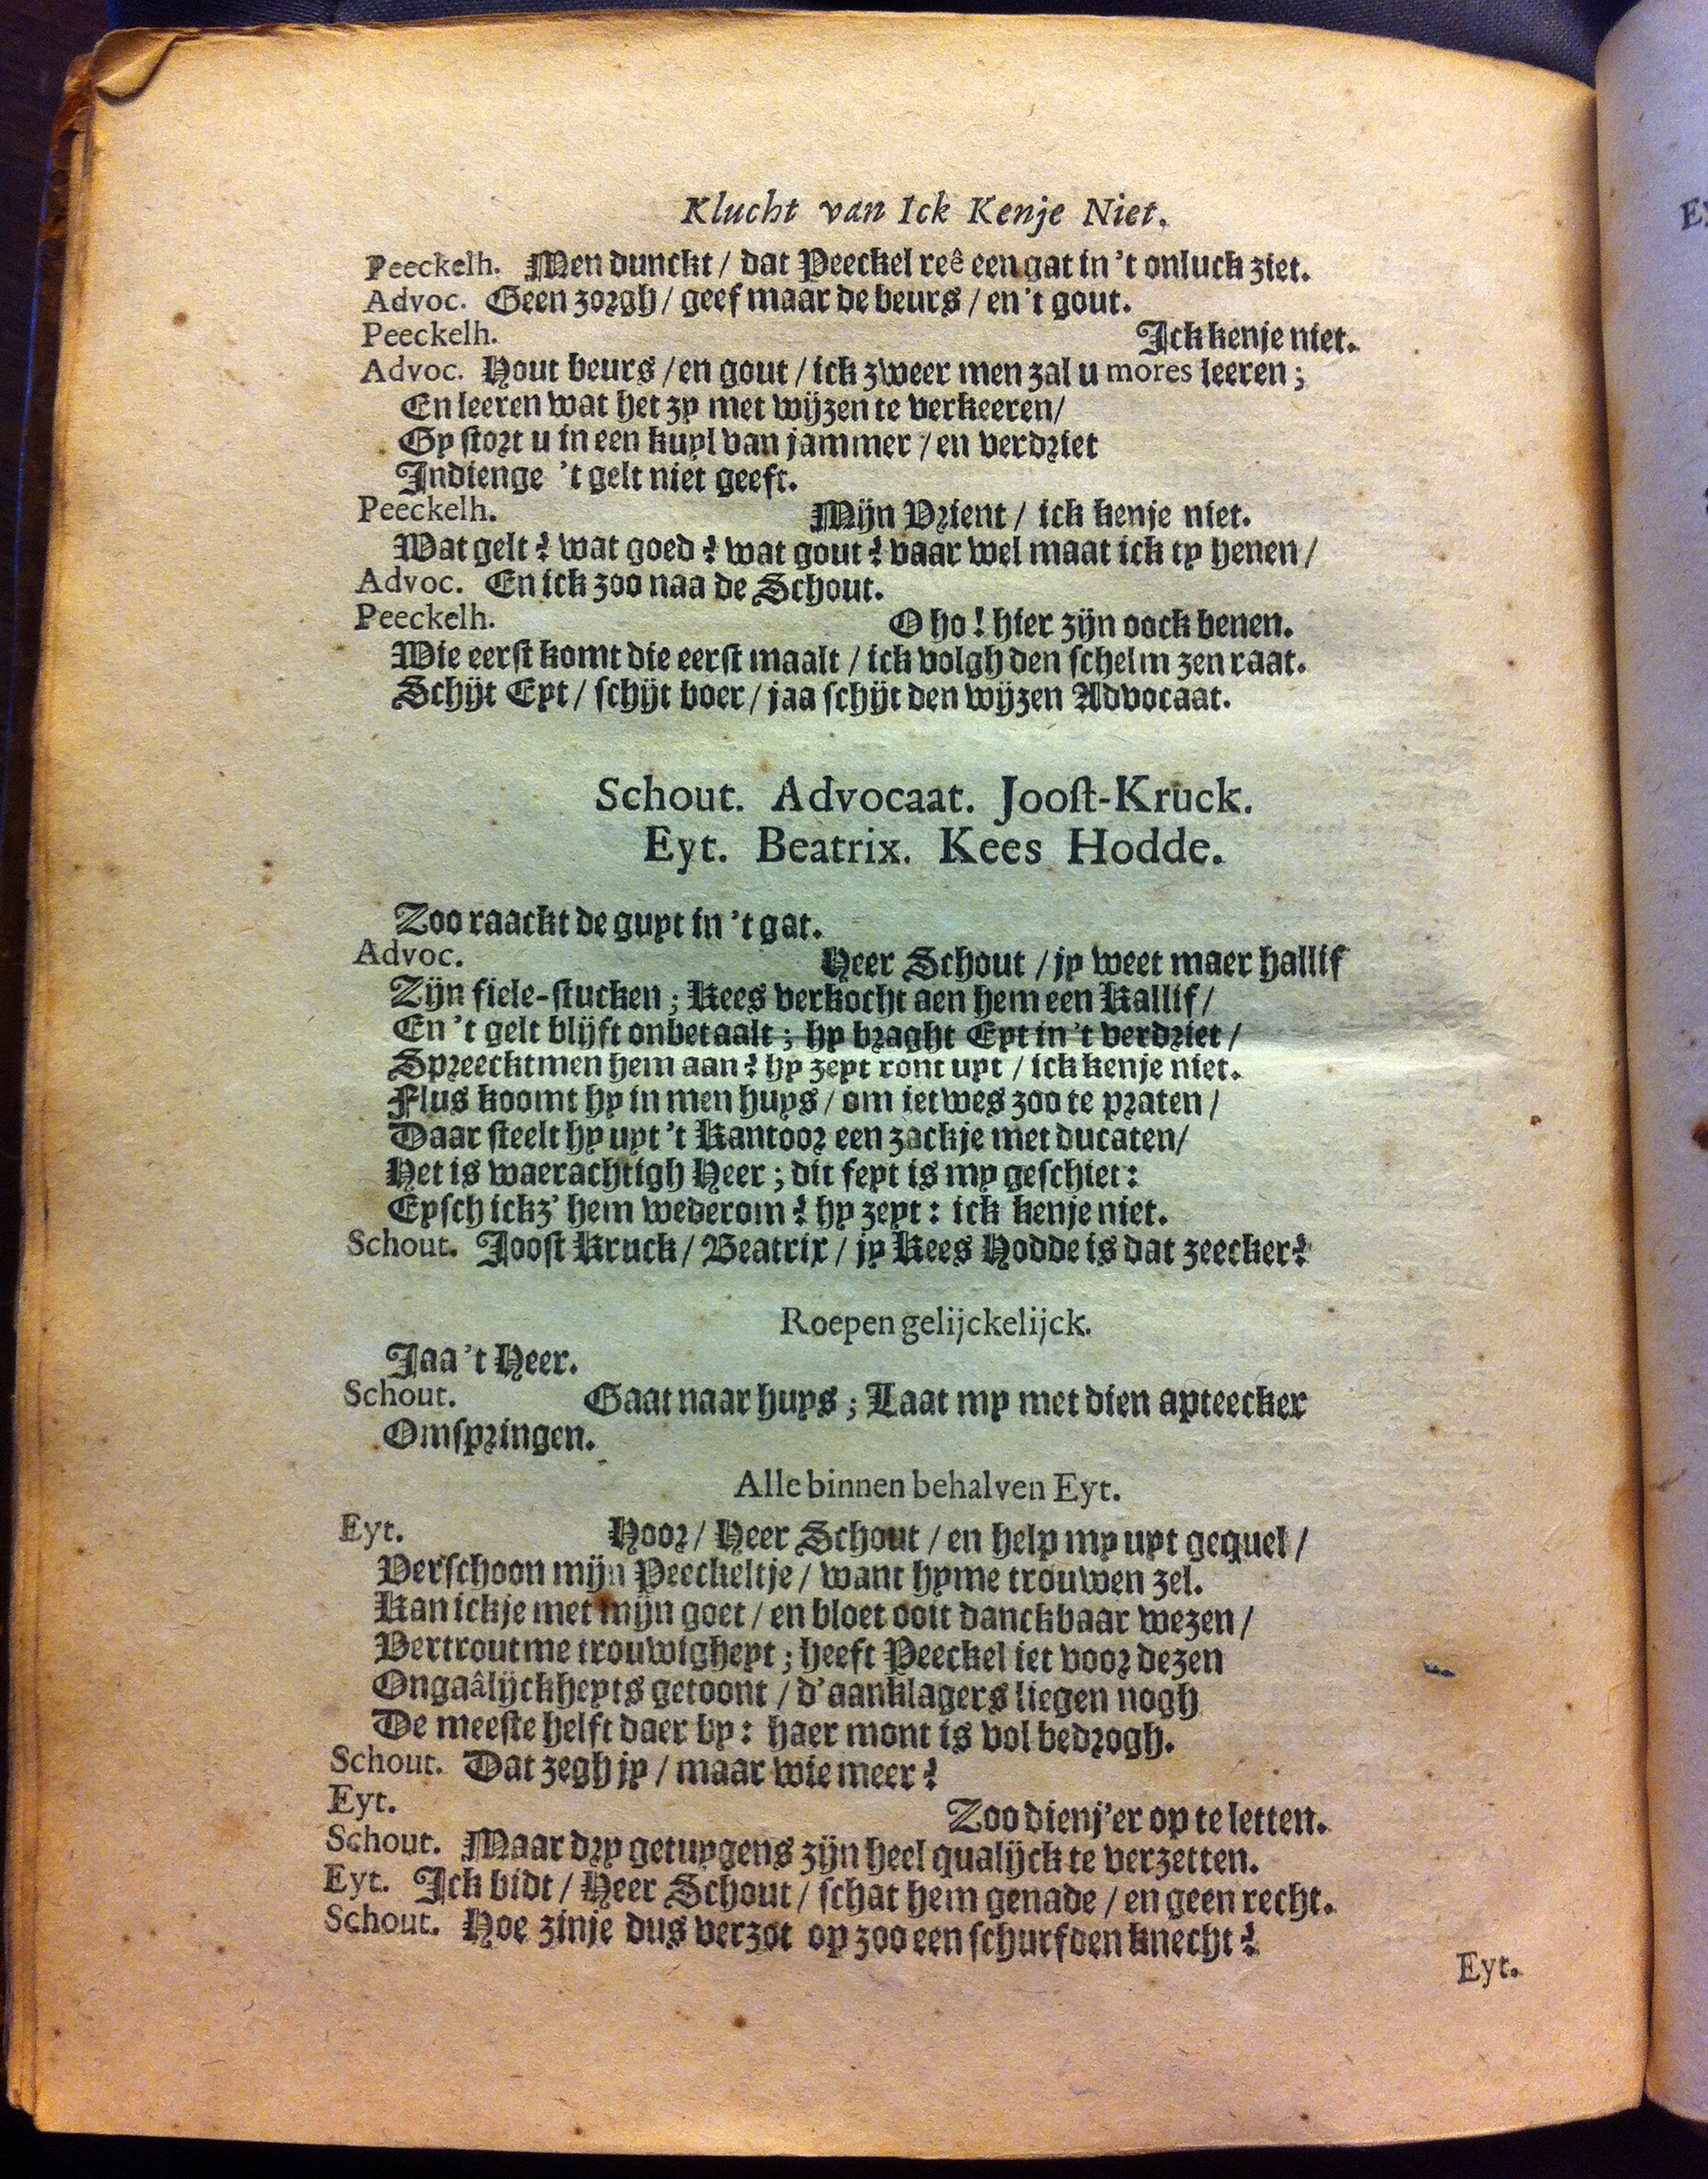 Klucht van Ick Kenje Niet.
Peeckelh. Men dunckt / dat Peeckel reê een gat in 't onluck ziet.
Advoc. Geen zorgh / geef maar de beurs / en 't gout.
Peeckelh. Ick kenje niet.
Advoc. Hout beurs / en gout / ick zweer men zal u mores leeren ;
En leeren wat het zy met wijzen te verkeeren /
Gy stort u in een kuyl van jammer / en verdriet
Indienge 't gelt niet geeft.
Peeckelh. Mijn Vrient / ick kenje niet.
Wat gelt ? wat goed ? wat gout ? vaar wel maat ick ty henen /
Advoc. En ick zoo naa de Schout.
Peeckelh. O ho ! hier zijn oock benen.
Wie eerst komt die eerst maalt / ick volgh den schelm zen raat.
Schijt Eyt / schijt boer / jaa schijt den wijzen Advocaat.
Schout. Advocaat. Joost-Kruck.
Eyt. Beatrix. Kees Hodde.
Zoo raackt de guyt in 't gat.
Advoc. Heer Schout / jy weet maer hallif
Zijn fiele-stucken ; Kees verkocht aen hem een Kallif /
En 't gelt blijft onbetaalt ; hy braght Eyt in 't verdriet /
Spreecktmen hem aan ? hy zeyt ront uyt / ick kenje niet.
Flus koomt hy in men huys / om ietwes zoo te praten /
Daar steelt hy uyt 't Kantoor een zackje met ducaten /
Het is waerachtigh Heer ; dit feyt is my geschiet :
Eysch ickz' hem wederom ? hy zeyt : ick kenje niet.
Schout. Joost Kruck / Beatrix / jy Kees Hodde is dat zeecker ?
Roepen gelijckelijck.
Jaa 't Heer.
Schout. Gaat naar huys ; Laat my met dien apteecker
Omspringen.
Alle binnen behalven Eyt.
Eyt. Hoor / Heer Schout / en help my uyt gequel /
Verschoon mijn Peeckeltje / want hyme trouwen zel.
Kan ickje met mijn goet / en bloet ooit danckbaar wezen /
Vertroutme trouwigheyt ; heeft Peeckel iet voor dezen
Ongaâlijckheyts getoont / d'aanklagers liegen nogh
De meeste helft daer by : haer mont is vol bedrogh.
Schout. Dat zegh jy / maar wie meer ?
Eyt. Zoo dienj'er op te letten.
Schout. Maar dry getuygens zijn heel qualijck te verzetten.
Eyt. Ick bidt / Heer Schout / schat hem genade / en geen recht.
Schout. Hoe zinje dus verzot op zoo een schurfden knecht ?
Eyt.